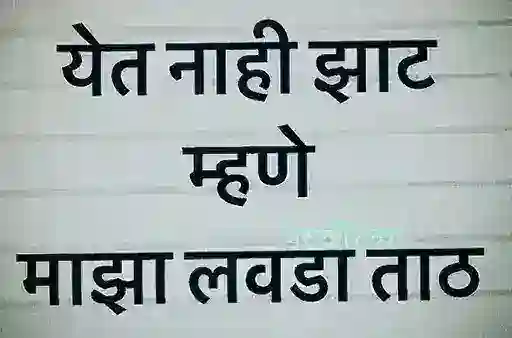 येत नाही झाट
म्हणे
माझा लवडा ताठ